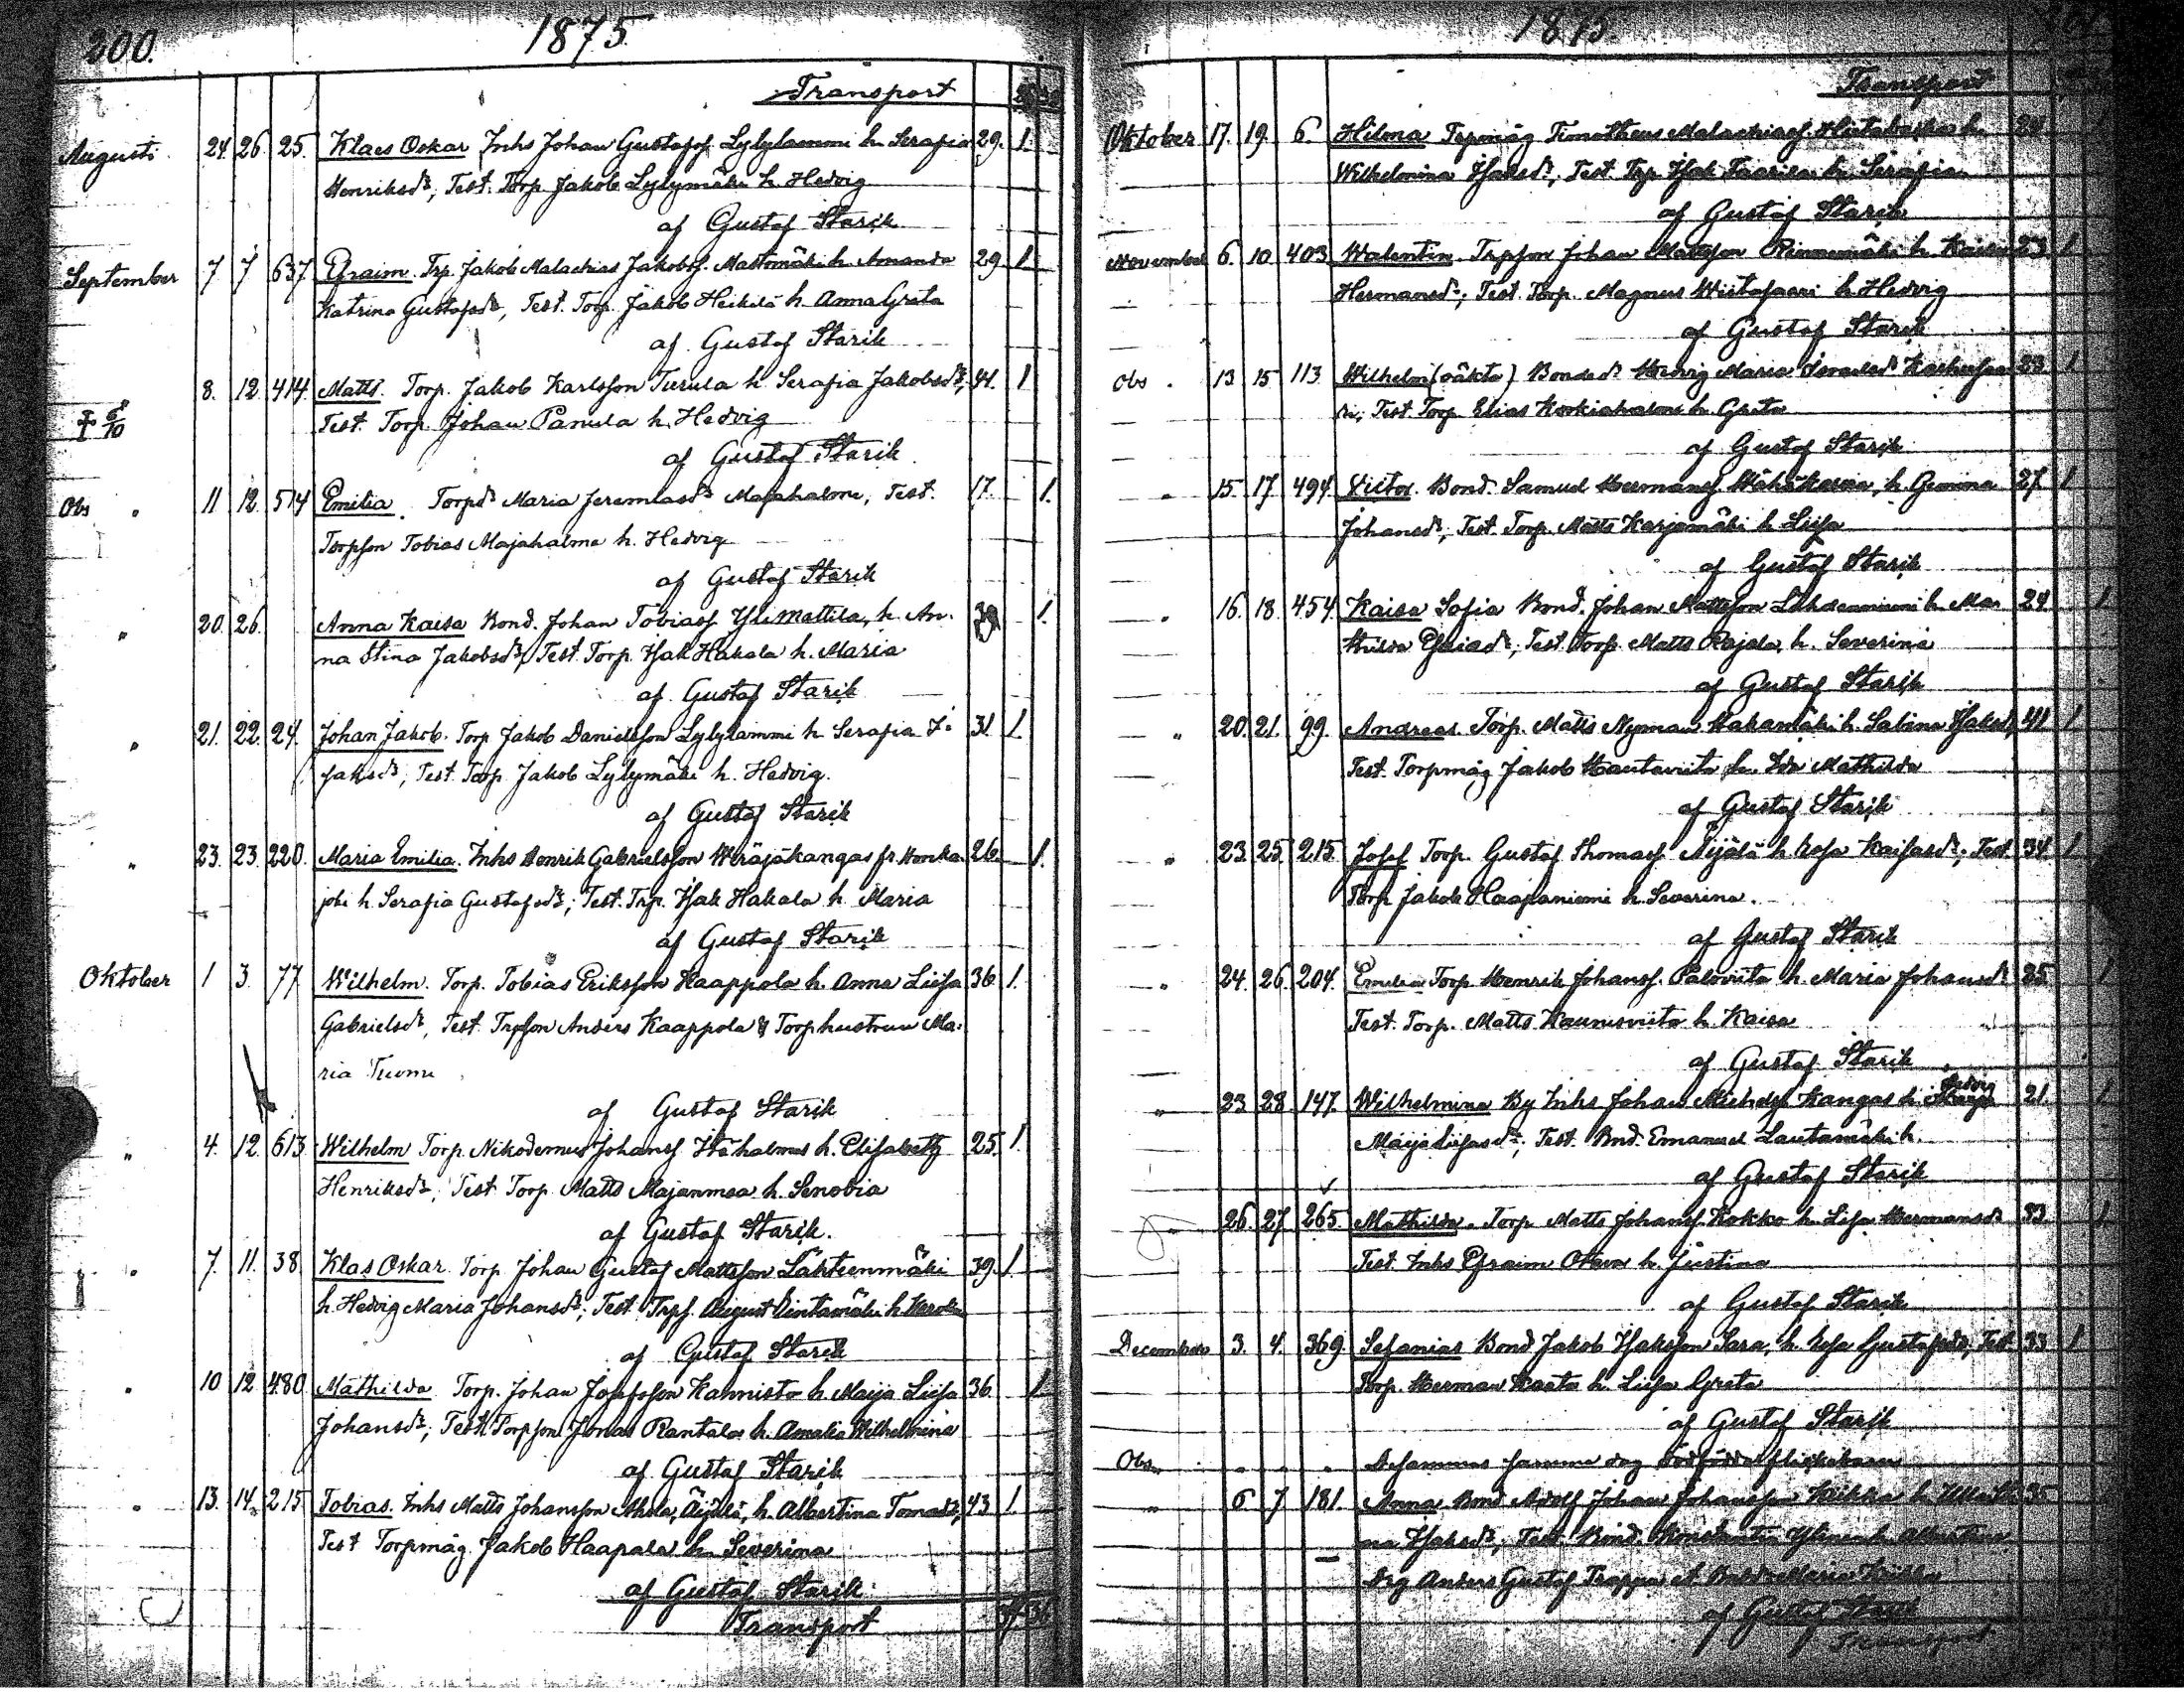 200.
1875
Transport
Augusti 24. 26 25. Klaes Oskar Inhs Johan Gustafsf. Lylylammi h. Serafia 29. 1.
Henriksdr, Test. Torp. Jakob Lylymäki h. Hedvig
af Gustaf Starik
September 7 7 637 Efraim. Trp. Jakob Malachias Jakobsf. Mattomäki h. Amanda 29 1
Katrina Gustafsdr, Test. Torp. Jakob Heikilä h. Anna Greta
af Gustaf Starik
" 8. 12. 414. Matts. Torp. Jakob Karlsson Turula h. Serafia Jakobsdr, 41. 1
Test. Torp. Johan Panula h. Hedvig
af Gustaf Starik
Obs " 11 12. 514 Emilia. Torpdr Maria Jeremiasdr Majahalme, Test. 17. 1.
Torpson Tobias Majahalme h. Hedvig
af Gustaf Starik
" 20. 26. Anna Kaisa Bond. Johan Tobiasf. Yli Mattila, h. An- 1.
na Stina Jakobsdr, Test. Torp. Isak Hakala h. Maria
af Gustaf Starik
" 21. 22. 24. Johan Jakob. Torp. Jakob Danielsson Lylylammi h. Serafia I- 31. 1.
saksdr, Test. Torp. Jakob Lylymäki h. Hedvig.
af Gustaf Starik
" 23. 23. 220. Maria Emilia. Inhs Henrik Gabrielsson Wiräjäkangas fr. Honka- 26. 1.
joki h. Serafia Gustafsdr; Test. Trp. Isak Hakala h. Maria
af Gustaf Starik
Oktober 1 3. 77 Wilhelm. Torp. Tobias Eriksson Kaappola h. Anna Liisa 36. 1.
Gabrielsdr, Test. Trpson Anders Kaappola & Torphustrun Ma-
ria Tuomi
af Gustaf Starik
" 4. 12. 613. Wilhelm Torp. Nikodemus Johansf. h. Elisabeth 25. 1.
Henriksdr, Test Torp. Matts Majanmaa h. Senobia
af Gustaf Starik.
" 7. 11. 38 Klas Oskar. Torp. Johan Gustaf Mattsson Lähteenmäki 39. 1.
h. Hedvig Maria Johansdr; Test. Trpf. August h.
af Gustaf Starik
" 10 12. 480 Mathilda Torp. Johan Josefsson Kannisto h. Maija Liisa 36. 1.
Johansdr, Test. Torpson Jonas Rantala h. Amalia Wilhelmina
af Gustaf Starik
" 13. 14. 215 Tobias. Inhs Matts Johansson Ahola, Äijälä, h. Albertina Tomasdr, 43 1.
Test Torpmåg Jakob Haapala h. Severina
af Gustaf Starik
Transport
1875.
Transport
Oktober 17. 19. 6. Hilma Torpmåg Timotheus Malachiasf. h. 24 1
Wilhelmina Isaksdr, Test. Trp. Isak h. Serafia
af Gustaf Starik
November 6. 10 403 Walentin. Trpson Johan Mattsson Rinnemäki h. Kaisa 23 1
Hermansdr; Test. Torp. Magnus Wiitasaari h. Hedvig
af Gustaf Starik
Obs. 13 15 113 Wilhelm (oäkta) Bondedr Hedvig Maria Israelsdr 23. 1
Test. Torp. Elias h. Greta
af Gustaf Starik
" 15. 17 494. Victor. Bond. Samuel Hermansf. h. Gemima 27. 1
Johansdr, Test. Torp. Matts Karjamäki h. Liisa
af Gustaf Starik
" 16. 18. 454. Kaisa Sofia Bond. Johan Mattsson h. Ma- 24. 1
thilda Test. Torp. Matts Rajala, h. Severina
af Gustaf Starik
" 20. 21. 99. Andreas. Torp. Matts Nyman Hakamäki h. Sabina Isaksdr, 41 1
Test. Torpmåg Jakob Hautaviita h. Ida Mathilda
af Gustaf Starik
" 23. 25. 215. Josef Torp. Gustaf Thomasf. Äijälä h. Test. 34. 1
Torp. Jakob Haapaniemi h. Severina.
af Gustaf Starik
" 24. 26. 204. Emilia Torp. Henrik Johansf. Paloviita h. Maria Johansdr 25. 1
Test. Torp. Matts Kaunisviita h. Kaisa
af Gustaf Starik
" 23 28 147. Wilhelmina By Inhs Johan Michelsf. Kangas h. Hedvig 21. 1
Test. Bnd. Emanuel Lautamäki h.
af Gustaf Starik
26. 27 265. Mathilda. Torp. Matts Johansf. Kokko h. Lisa Hermansdr 33. 1
Test. Inhs Efraim Otava h. Justina
af Gustaf Starik
December 3. 4. 369. Sefanias Bond Jakob Isaksson Sara, h. Gustafsdr, Test. 33 1
Torp. Herman h. Liisa Greta
af Gustaf Starik
Obs. " " " samma dag dödfödda
" 6 7 181. Anna Bond Adolf Johan Johansson h. 35
Isaksdr, Test. Bond.
Anders Gustaf
af Gustaf Starik
Transport